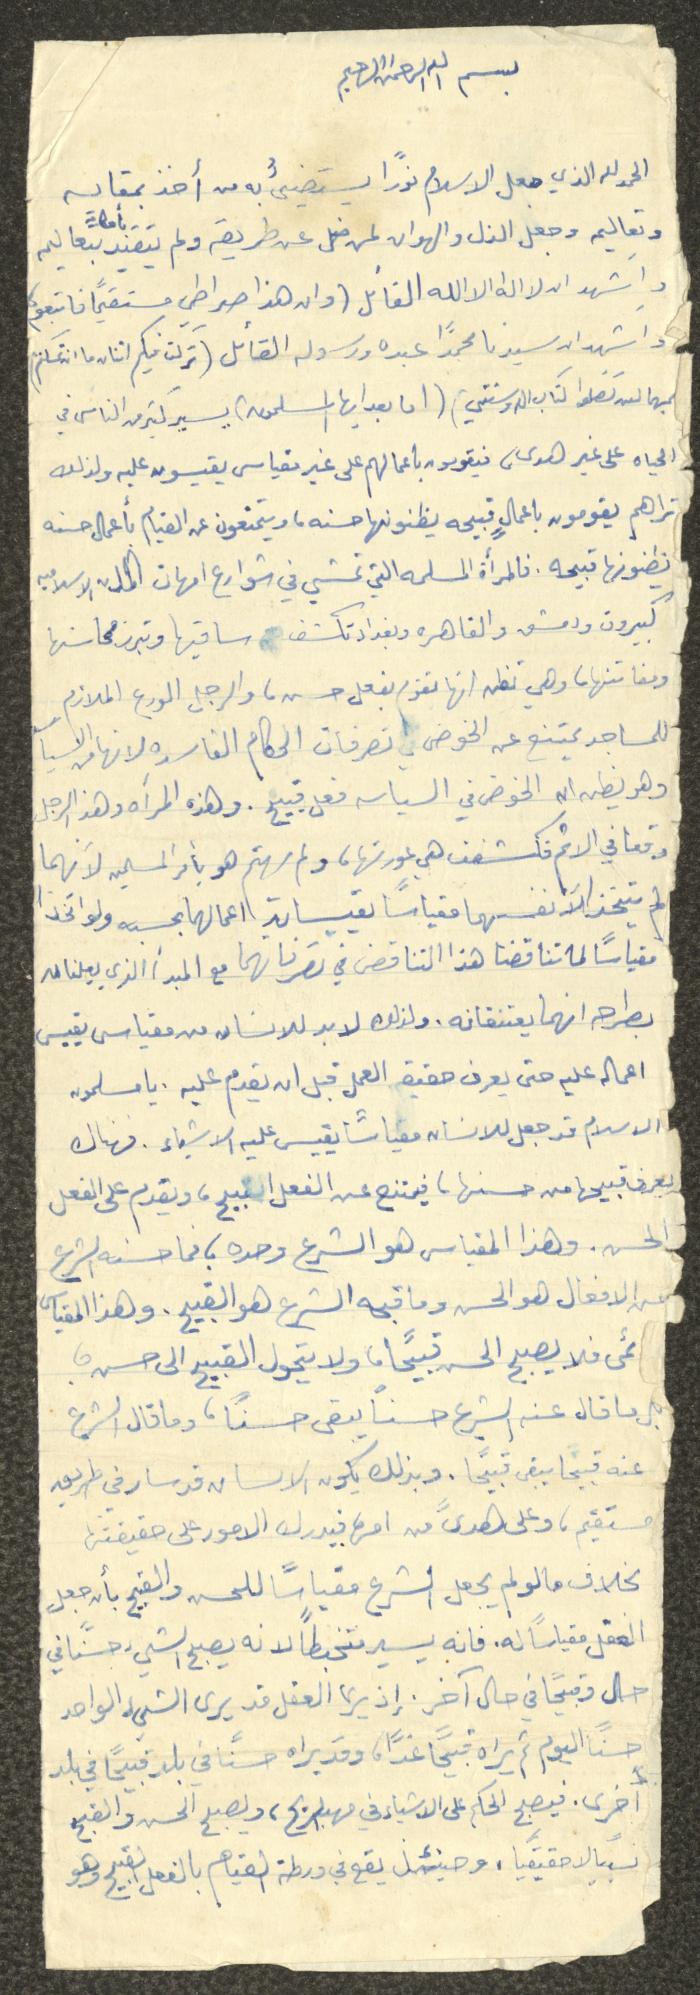 بسم الله الرحمن الرحيم
الحمد لله الذي جعل الاسلام نورًا يستضيئُ به من أخذ بمقاله
وتعاليمه وجعل الذل والهوان لمن ضل عن طريقه ولم يتقيد بتعاليمه
وأشهد ان لا اله الا الله القائل (وان هذا صراطي مستقيمًا فاتبعوه)
وأشهد ان سيدنا محمدًا عبده ورسوله القائل (تركت فيكم اثنان ما ان تمسكتم
بهما لن تضلوا كتاب الله وسنتي) (اما بعد ايها المسلمون) يسير كثير من الناس في
الحياه على غير هدى، فيقومون بأعمالهم على غير مقياس يقيسون عليه ولذلك
تراهم يقومون باعمالٍ قبيحه يظنونها حسنه، ويمتنعون عن القيام بأعمال حسنه
يظنونها قبيحه. فالمرأة المسلمه التي تمشي في شوارع امهات المدن الاسلاميه
كبيروت ودمشق والقاهره وبغداد تكشف ساقيها وتبرز محاسنها
ومفاتنها، وهي تظن انها تقوم بفعل حسن، والرجل الورع الملازم
للمساجد يمتنع عن الخوض في تصرفات الحكام الفاسده لانها من السياسه
وهو يظن ان الخوض في السياسه فعل قبيح. وهذه المرأه وهذا الرجل
وقعا في الاثم فكشفت هي عورتها، ولم يهتم هو بأمر المسلمين لأنهما
لم يتخذا لأنفسهما مقياسًا يقيسان اعمالهما بحسبه ولو اتخذا
مقياسًا لما تناقضا هذا التناقض في تصرفاتهما مع المبدأ الذي يعلنان
بصراحه انهما يعتنقانه. ولذلك لابد للانسان من مقياس يقيس
اعماله عليه حتى يعرف حقيقة العمل قبل ان يقدم عليه. يا مسلمون
الاسلام قد جعل للانسان مقياسًا يقيس عليه الاشياء. فهناك
يعرف قبيحها من حسنها، فيمتنع عن الفعل القبيح، ويقدم على الفعل
الحسن. وهذا المقياس هو الشرع وحده، فما حسنه الشرع
من الافعال هو الحسن وما قبحه الشرع هو القبيح. وهذا المقياس
دائمي فلا يصبح الحسن قبيحًا، ولا يتحول القبيح الى حسن،
بل ما قال عنه الشرع حسنًا يبقى حسنًا، وما قال الشرع
عنه قبيحًا يبقى قبيحًا. وبذلك يكون الانسان قد سار في طريق
مستقيم، وعلى هدىً من امره فيدرك الامور على حقيقتها
بخلاف ما لو لم يجعل الشرع مقياسًا للحسن والقبح بأن جعل
العقل مقياسًا له. فانه يسير متخبطًا لانه يصبح الشيء حسنًا في
حال وقبيحًا في حال آخر. إذ يرى العقل قد يرى الشيء الواحد
حسنًا اليوم ثم يراه قبيحًا غدًا، وقد يراه حسنًا في بلد قبيحًا في بلد
أخرى. فيصبح الحكم على الاشياء في مهب الريح، ويصبح الحسن والقبح
نسبيًا لا حقيقيًا. وحينئذ يقع في ورطة القيام بالفعل القبيح وهو